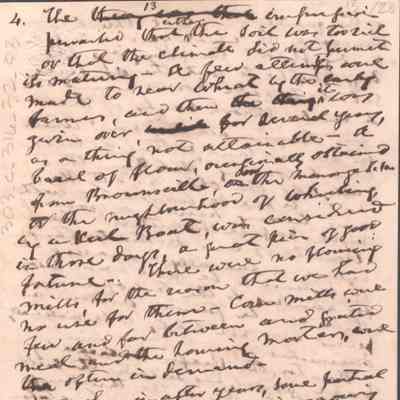 13
4. The impression
either
prevailed that the soil was too rich
or that the climate did not permit
its maturing. A few attempts were
made to rear wheat by the early
farmers, and then it was
given over, for several years,
as a thing not attainable - A
barrel of flour, occasionally obtained
from Brownsville, or
to the neighbourhood of Wheeling,
by a Keel Boat, was considered
in those days, a great piece of good
fortune. There were no flouring
mills, for the reason that we had
no use for them - Corn mills were
few and far between and
meal and the homing mortar, were
often in demand.
in after years, some partial